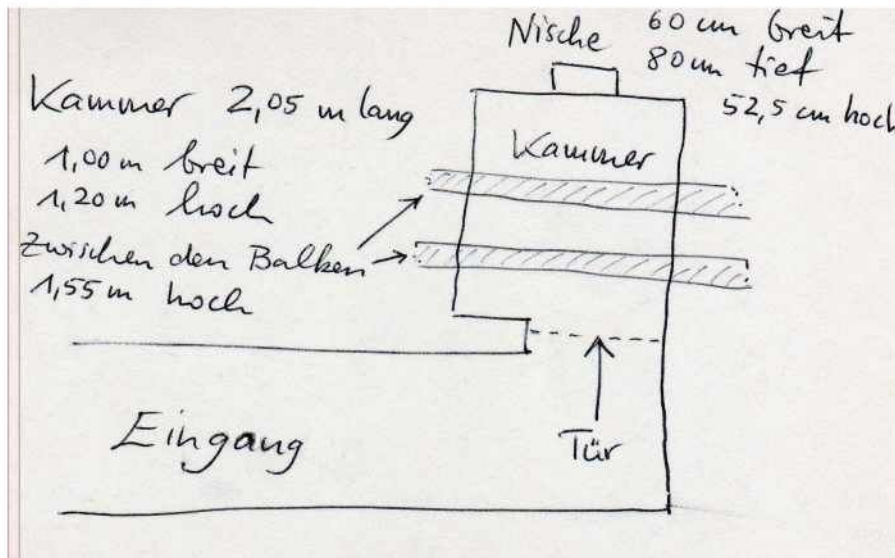 Nische 60 cm breit
80 cm tief
52,5 cm hoch
Kammer 2,05 m lang
1,00 m breit
1,20 m hoch
zwischen den Balken
1,55 m hoch
Kammer
Eingang
Tür